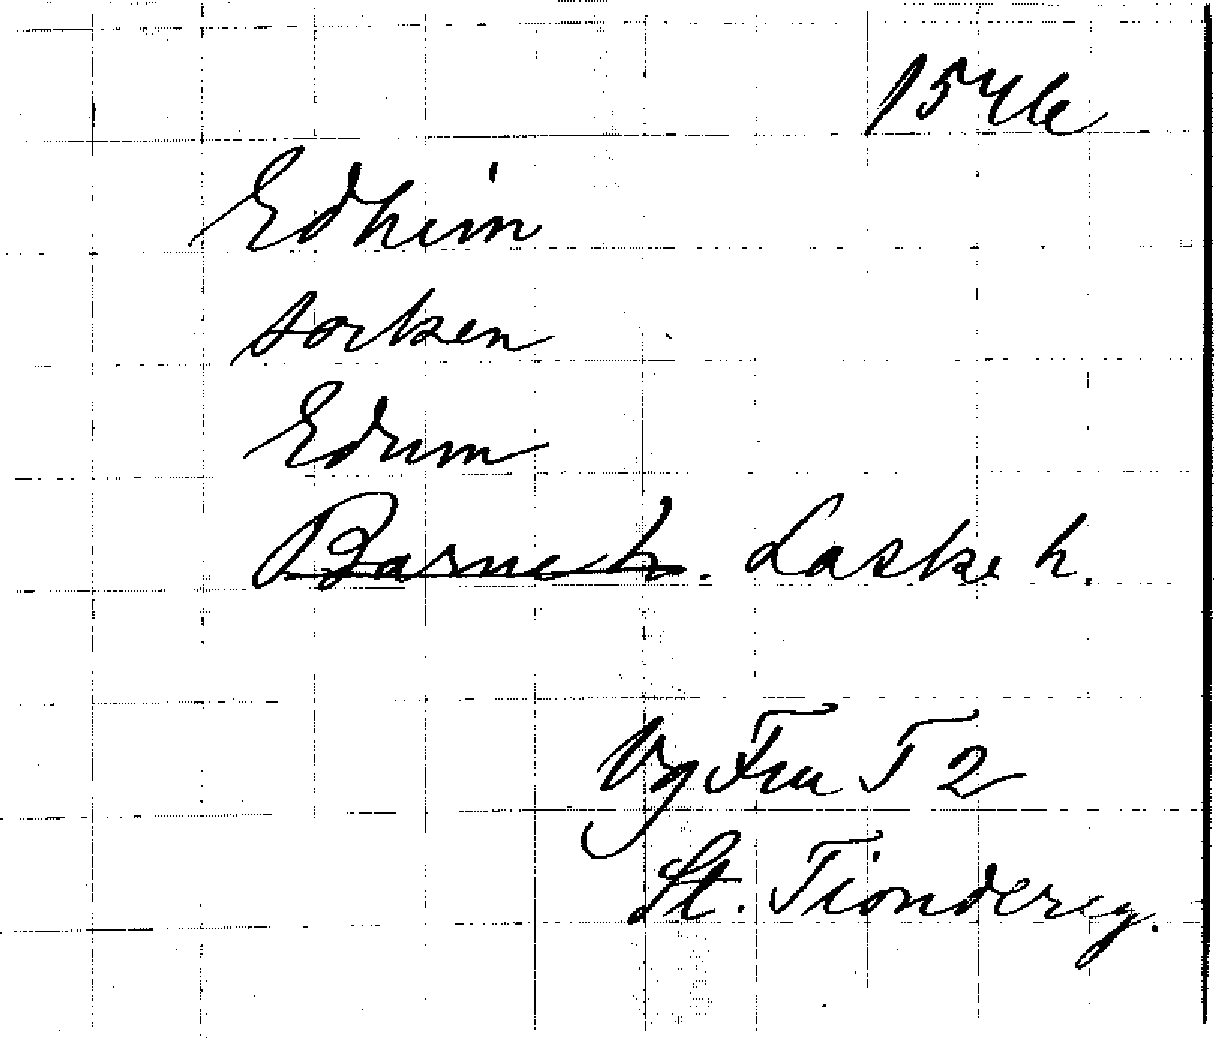 1546
Edhim
socken
Edum
Barne h. Laske h.
Vg Fru T 2
St. Tiondereg.